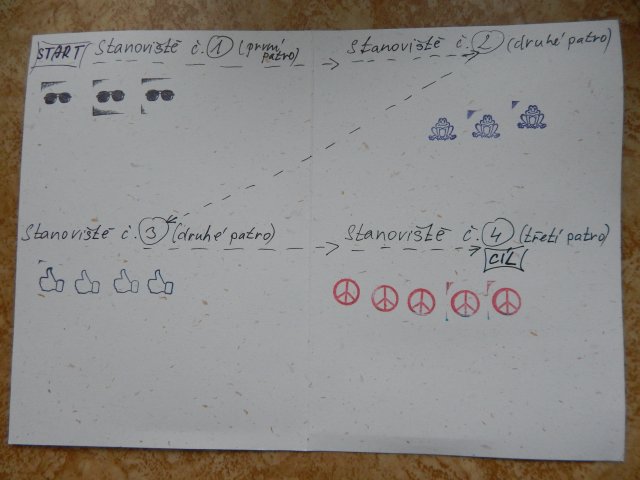 START Stanoviště č. 1 (první
patro)
Stanoviště č. 2 (druhé patro)
Stanoviště č. 3 (druhé patro)
Stanoviště č. 4 (třetí patro)
CÍL